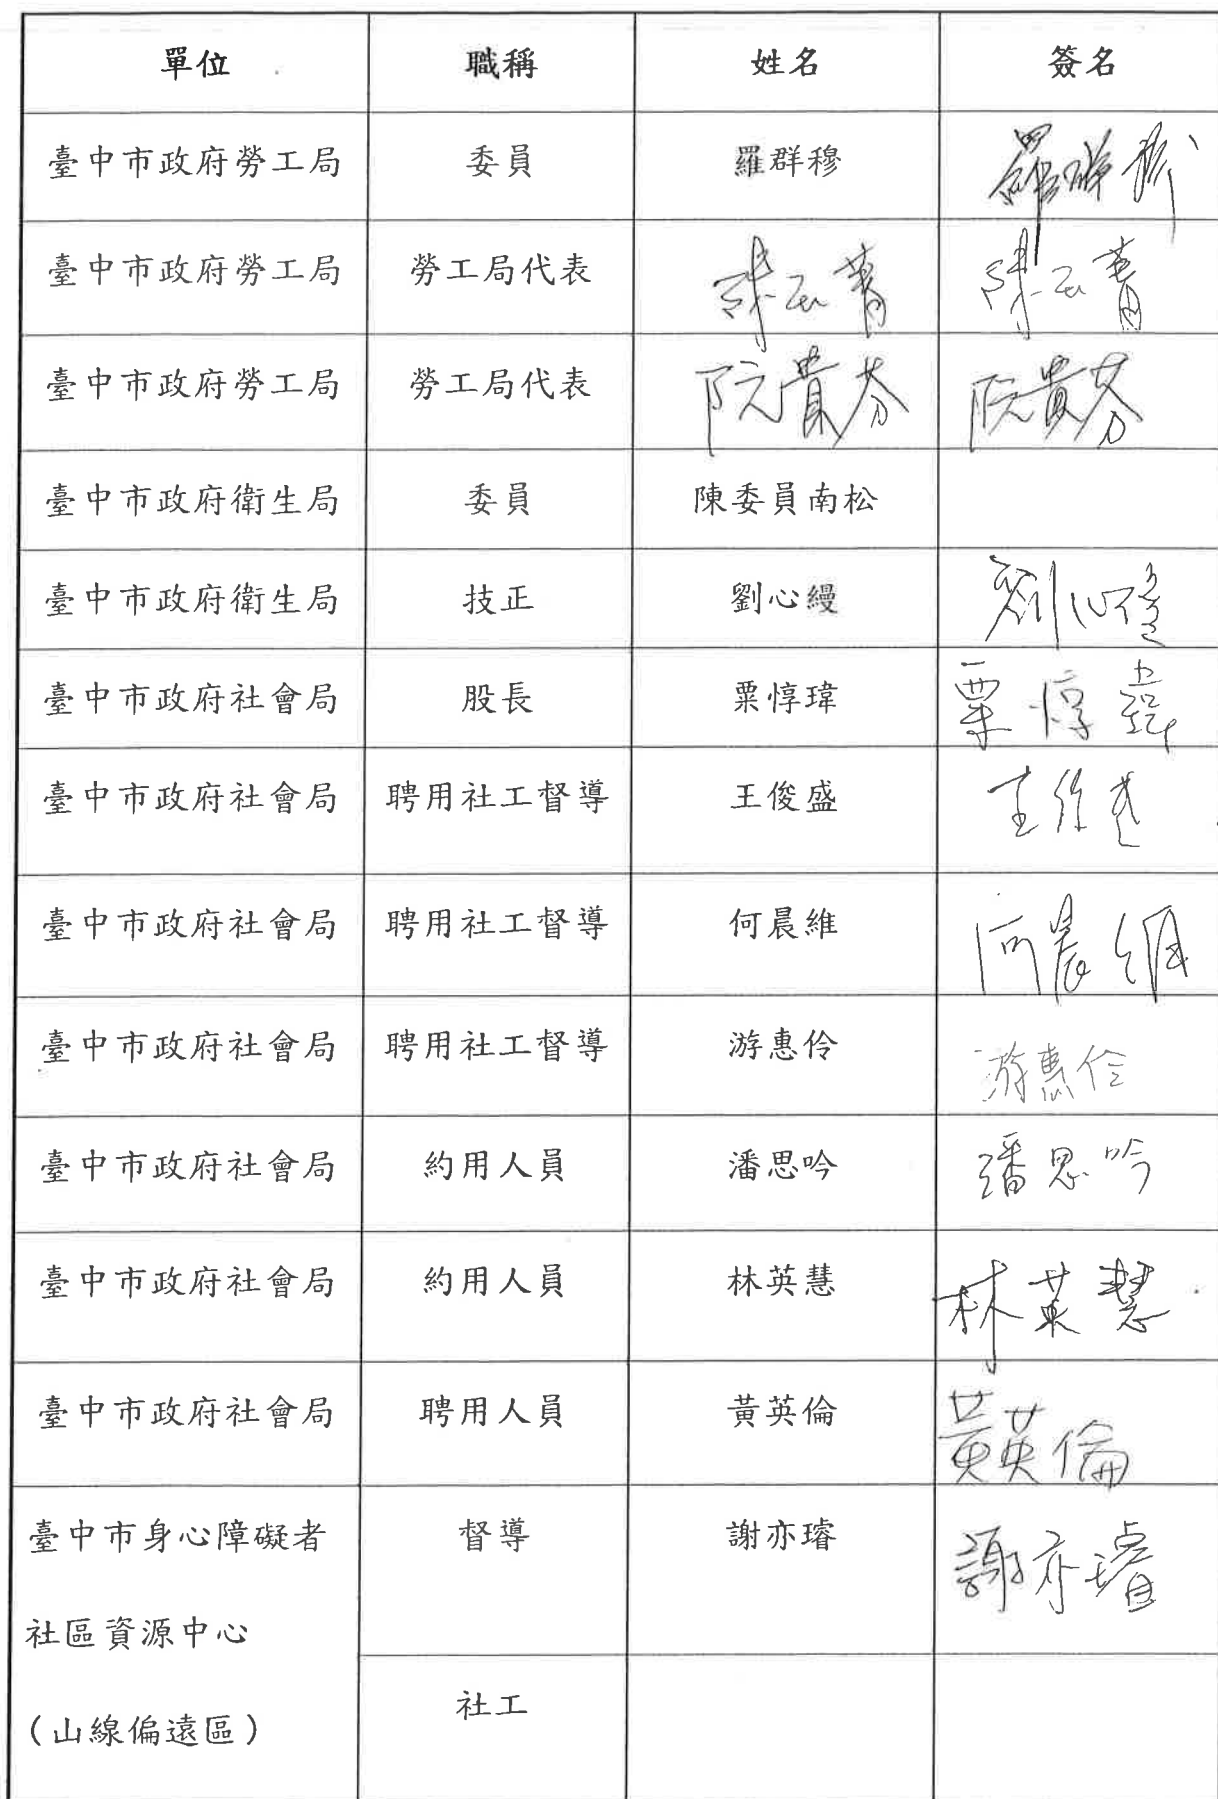 單位 職稱 姓名 簽名
臺中市政府勞工局 委員 羅群穆 羅群穆
臺中市政府勞工局 勞工局代表
臺中市政府勞工局 勞工局代表 阮貴芬 阮貴芬
臺中市政府衛生局 委員 陳委員南松
臺中市政府衛生局 技正 劉心縵
臺中市政府社會局 股長 粟惇瑋 粟惇瑋
臺中市政府社會局 聘用社工督導 王俊盛 王俊盛
臺中市政府社會局 聘用社工督導 何晨維 何晨維
臺中市政府社會局 聘用社工督導 游惠伶 游惠伶
臺中市政府社會局 約用人員 潘思吟 潘思吟
臺中市政府社會局 約用人員 林英慧 林英慧
臺中市政府社會局 聘用人員 黃英倫 黃英倫
臺中市身心障礙者 督導 謝亦璿 謝亦璿
社區資源中心
社工
（山線偏遠區）